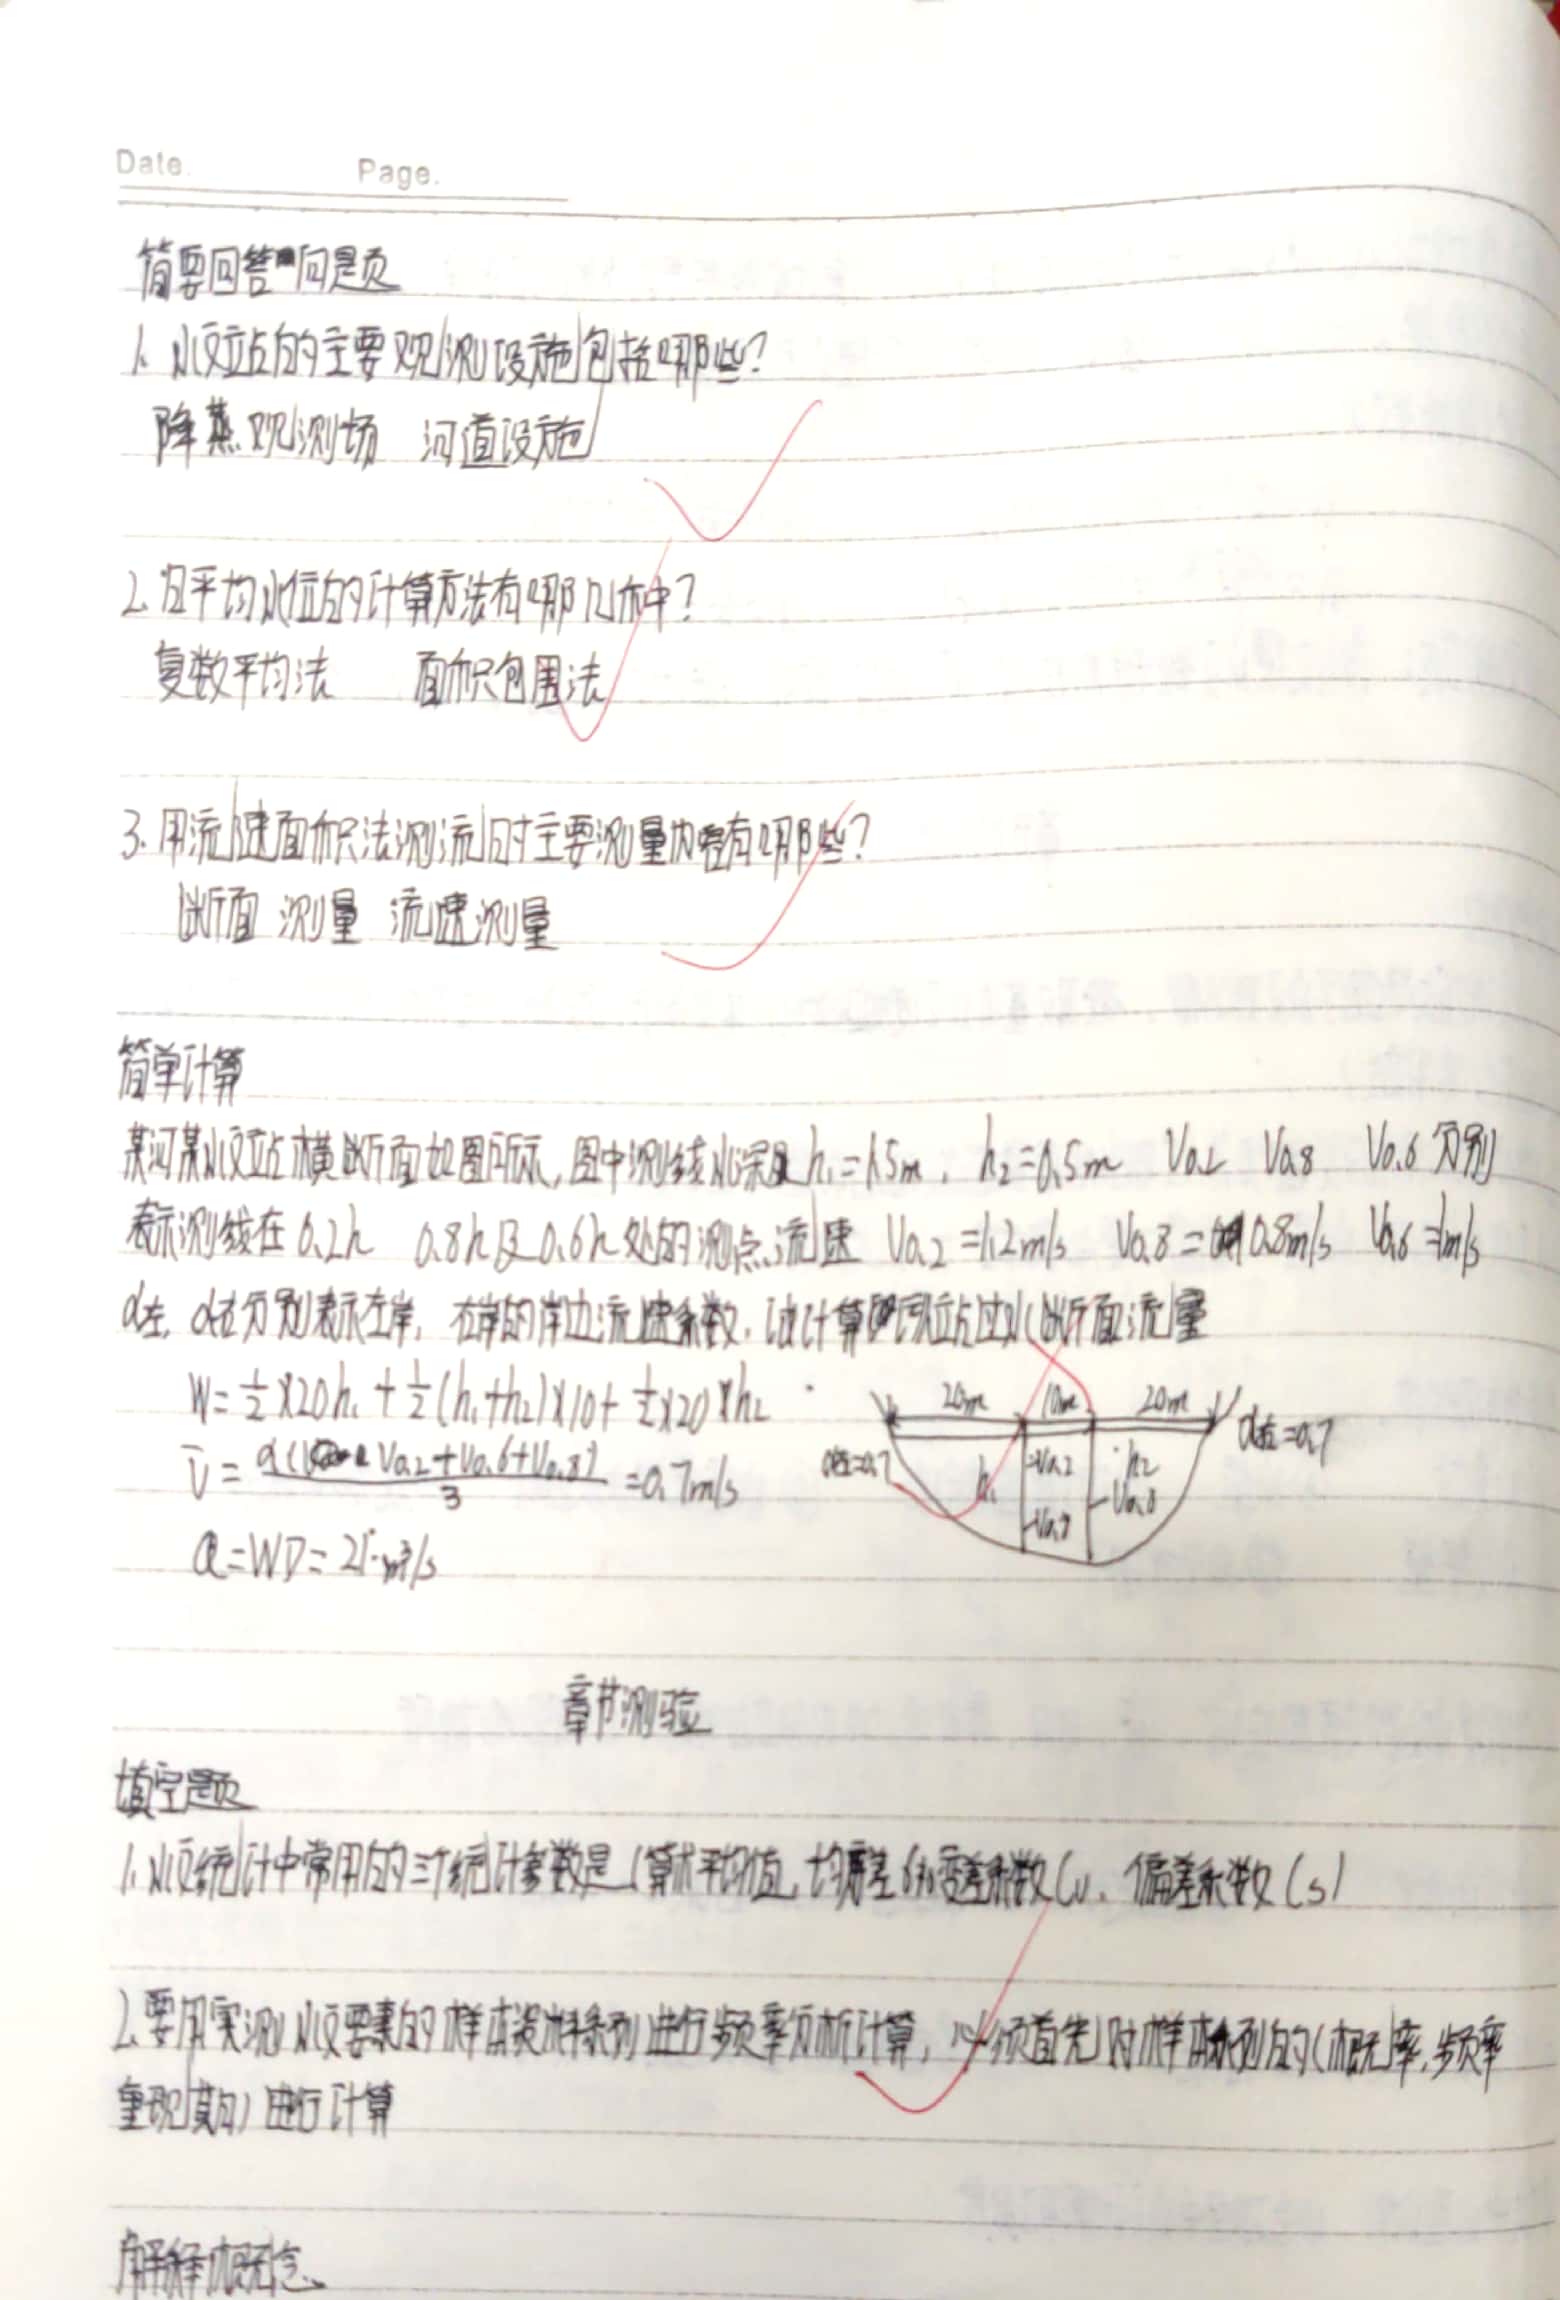 Date. Page.
简要回答问题
1. 水文站的主要观测设施包括哪些?
降蒸观测场 河道设施
2. 日平均水位的计算方法有哪几种?
复数平均法 面积包围法
3. 用流速面积法测流时主要测量内容有哪些?
断面 测量 流速测量
简单计算
某河某水文站横断面如图所示,图中测线水深 h₁=1.5m, h₂=0.5m V0.2 V0.8 V0.6 分别
表示测线在 0.2h 0.8h及0.6h处的测点流速 V0.2=1.2m/s V0.8=0.8m/s V0.6=1m/s
α左, α右分别表示左岸, 右岸的岸边流速系数, 试计算 站过水断面流量
W=½×20h₁+½(h₁+h₂)×10+½×20×h₂
20m 10m 20m
V̄= α(V0.2+V0.6+V0.8)/3 =0.7m/s
=0.7 h₁ V0.2 h₂ =0.7
V0.8 V0.8
Q=WV=21 m³/s
章节测验
填空题
1. 水文统计中常用的三个统计参数是(算术平均值, 均方差 和变差系数Cv、偏差系数Cs)
2. 要用实测水文要素的样本资料系列进行频率分析计算, 必须首先对样本系列的(概率, 频率
重现期)进行计算
解释概念